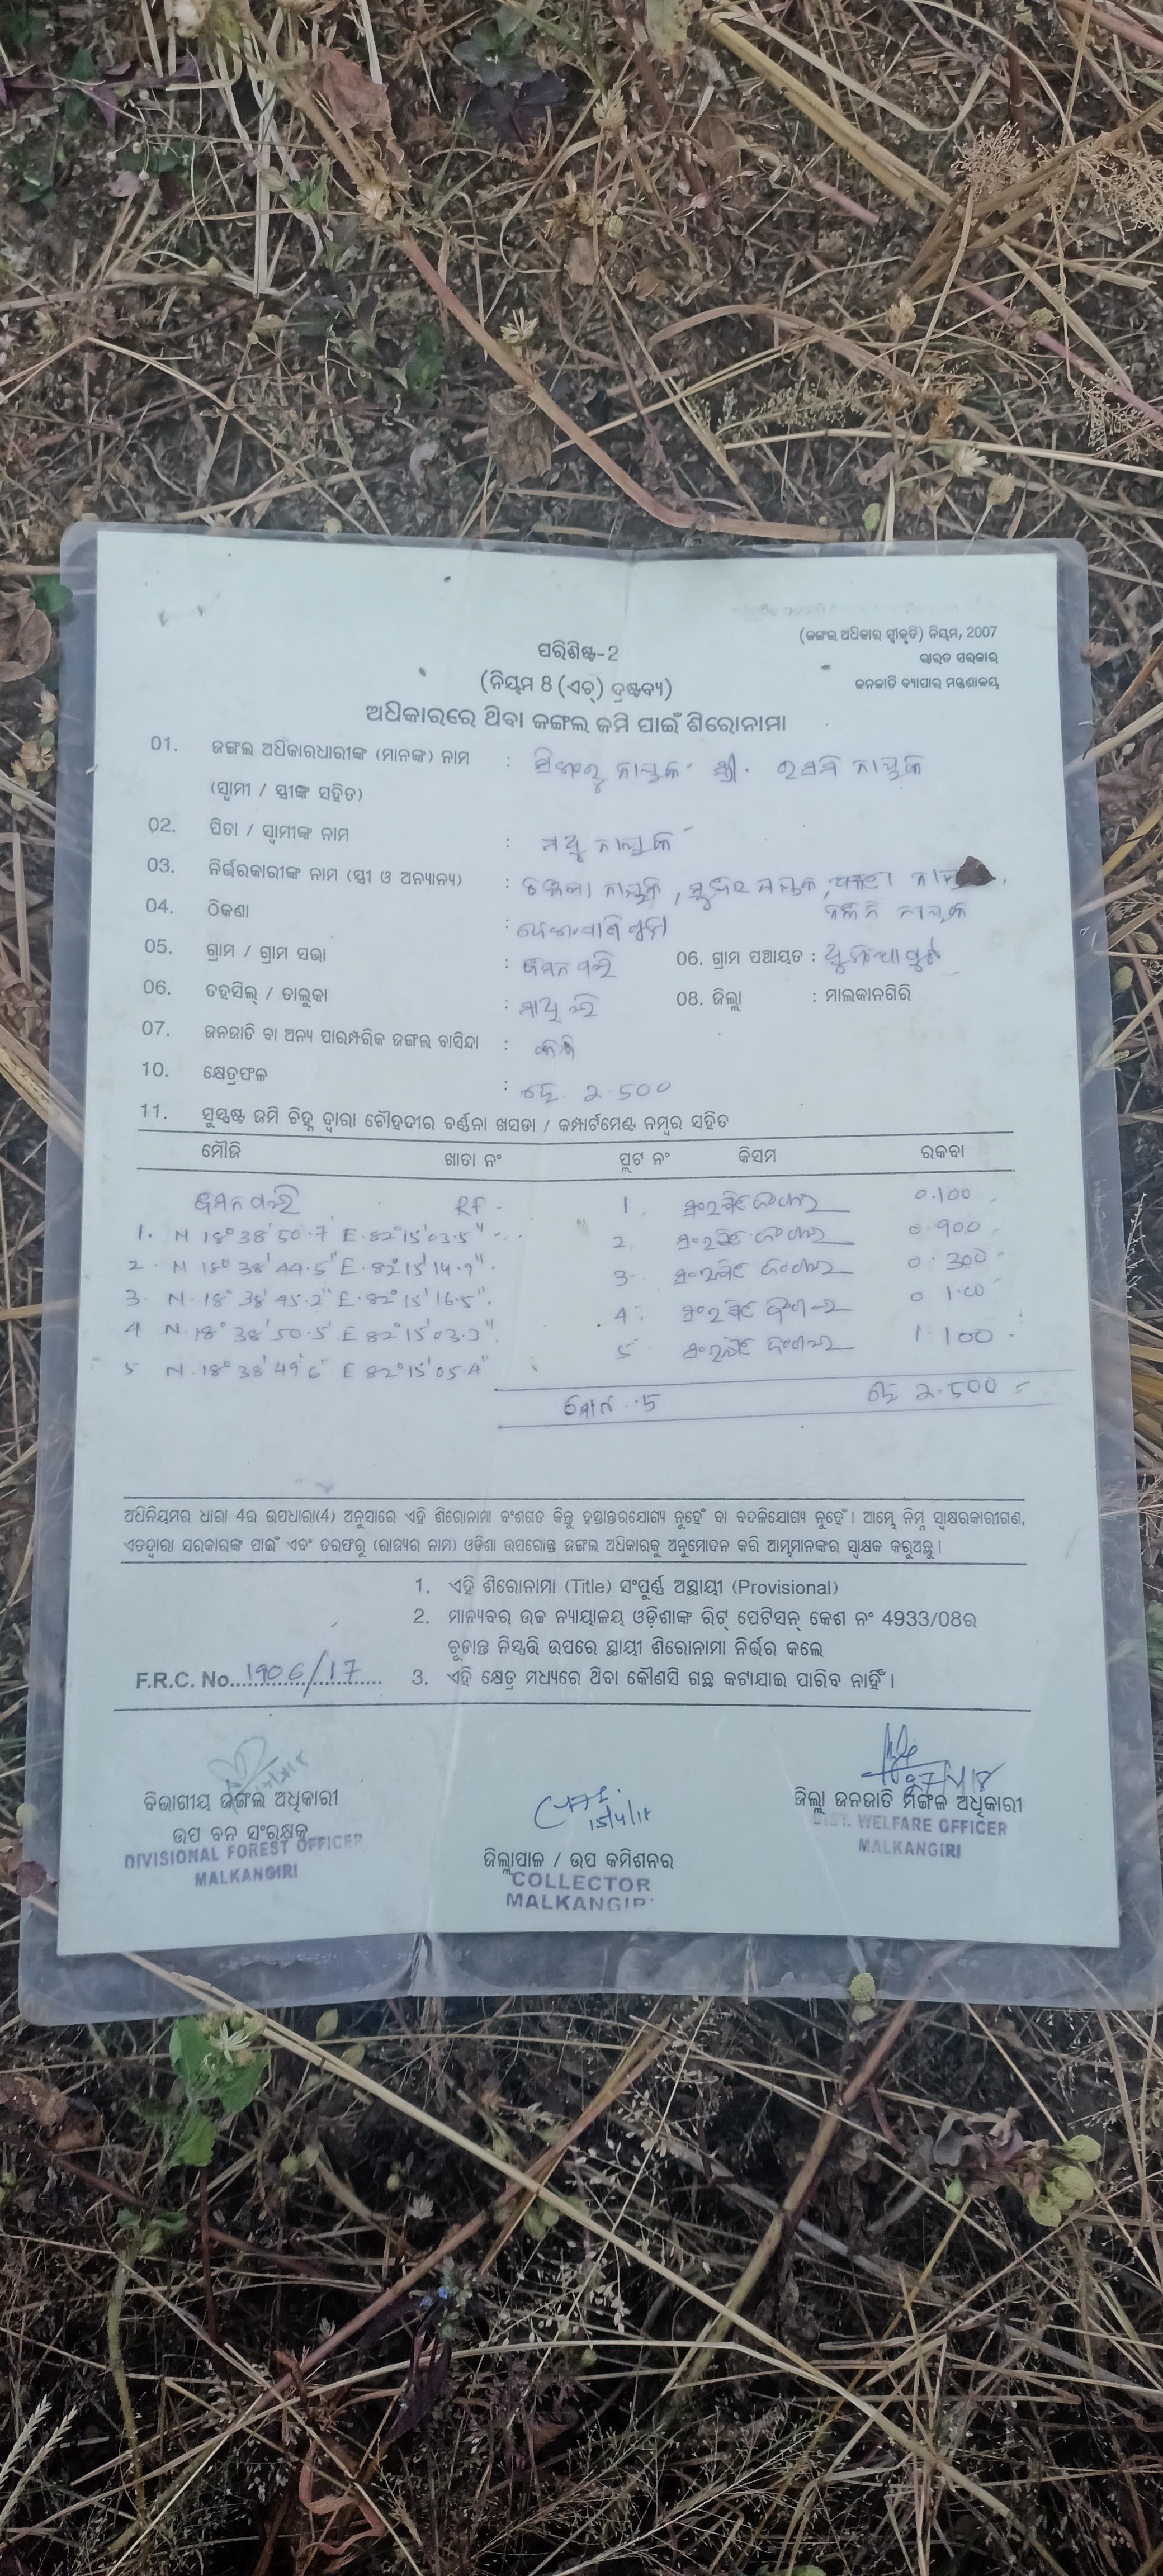 (ଜଙ୍ଗଲ ଅଧିକାର ସ୍ୱୀକୃତି) ନିୟମ, 2007
ପରିଶିଷ୍ଟ-2
ଭାରତ ସରକାର
(ନିୟମ 8 (ଏଚ୍) ଦ୍ରଷ୍ଟବ୍ୟ)
ଜନଜାତି ବ୍ୟାପାର ମନ୍ତ୍ରଣାଳୟ
ଅଧିକାରରେ ଥିବା ଜଙ୍ଗଲ ଜମି ପାଇଁ ଶିରୋନାମା
01. ଜଙ୍ଗଲ ଅଧିକାରଧାରୀଙ୍କ (ମାନଙ୍କ) ନାମ :
(ସ୍ୱାମୀ / ସ୍ତ୍ରୀଙ୍କ ସହିତ)
02. ପିତା / ସ୍ୱାମୀଙ୍କ ନାମ :
03. ନିର୍ଭରକାରୀଙ୍କ ନାମ (ସ୍ତ୍ରୀ ଓ ଅନ୍ୟାନ୍ୟ) :
04. ଠିକଣା :
05. ଗ୍ରାମ / ଗ୍ରାମ ସଭା : 06. ଗ୍ରାମ ପଞ୍ଚାୟତ :
06. ତହସିଲ୍ / ତାଲୁକା : 08. ଜିଲ୍ଲା : ମାଲକାନଗିରି
07. ଜନଜାତି ବା ଅନ୍ୟ ପାରମ୍ପରିକ ଜଙ୍ଗଲ ବାସିନ୍ଦା :
10. କ୍ଷେତ୍ରଫଳ : ହେ. ୨.500
11. ସୁସ୍ପଷ୍ଟ ଜମି ଚିହ୍ନ ଦ୍ୱାରା ଚୌହଦୀର ବର୍ଣ୍ଣନା ଖସଡା / କମ୍ପାର୍ଟମେଣ୍ଟ ନମ୍ବର ସହିତ
ମୌଜି ଖାତା ନଂ ପ୍ଲଟ ନଂ କିସମ ରକବା
RF 1. 0.100
1. N 18° 38' 50.7" E 82° 15' 03.5" 2. 0.900
2. N 18° 38' 44.5" E 82° 15' 14.9" 3. 0.300
3. N 18° 38' 45.2" E 82° 15' 16.5" 4. 0.100
4 N 18° 38' 50.5" E 82° 15' 03.3" 5 1.100
5 N 18° 38' 49.6" E 82° 15' 05.4"
ମୋଟ 5 ହେ ୨.500
ଅଧିନିୟମର ଧାରା 4ର ଉପଧାରା(4) ଅନୁସାରେ ଏହି ଶିରୋନାମା ବଂଶଗତ କିନ୍ତୁ ହସ୍ତାନ୍ତରଯୋଗ୍ୟ ନୁହେଁ ବା ବଦଳିଯୋଗ୍ୟ ନୁହେଁ । ଆମ୍ଭେ ନିମ୍ନ ସ୍ୱାକ୍ଷରକାରୀଗଣ,
ଏତଦ୍ଦ୍ୱାରା ସରକାରଙ୍କ ପାଇଁ ଏବଂ ତରଫରୁ (ରାଜ୍ୟର ନାମ) ଓଡିଶା ଉପରୋକ୍ତ ଜଙ୍ଗଲ ଅଧିକାରକୁ ଅନୁମୋଦନ କରି ଆମ୍ଭମାନଙ୍କର ସ୍ୱାକ୍ଷକ କରୁଅଛୁ ।
1. ଏହି ଶିରୋନାମା (Title) ସଂପୂର୍ଣ୍ଣ ଅସ୍ଥାୟୀ (Provisional)
2. ମାନ୍ୟବର ଉଚ୍ଚ ନ୍ୟାୟାଳୟ ଓଡ଼ିଶାଙ୍କ ରିଟ୍ ପେଟିସନ୍ କେଶ ନଂ 4933/08ର
ଚୂଡାନ୍ତ ନିସ୍ପତ୍ତି ଉପରେ ସ୍ଥାୟୀ ଶିରୋନାମା ନିର୍ଭର କଲେ
F.R.C. No. 1906/17 3. ଏହି କ୍ଷେତ୍ର ମଧ୍ୟରେ ଥିବା କୌଣସି ଗଛ କଟାଯାଇ ପାରିବ ନାହିଁ ।
ବିଭାଗୀୟ ଜଙ୍ଗଲ ଅଧିକାରୀ
ଉପ ବନ ସଂରକ୍ଷକ
DIVISIONAL FOREST OFFICER
MALKANGIRI
15/4/18
ଜିଲ୍ଲାପାଳ / ଉପ କମିଶନର
COLLECTOR
MALKANGIRI
ଜିଲ୍ଲା ଜନଜାତି ମଙ୍ଗଳ ଅଧିକାରୀ
DIST. WELFARE OFFICER
MALKANGIRI